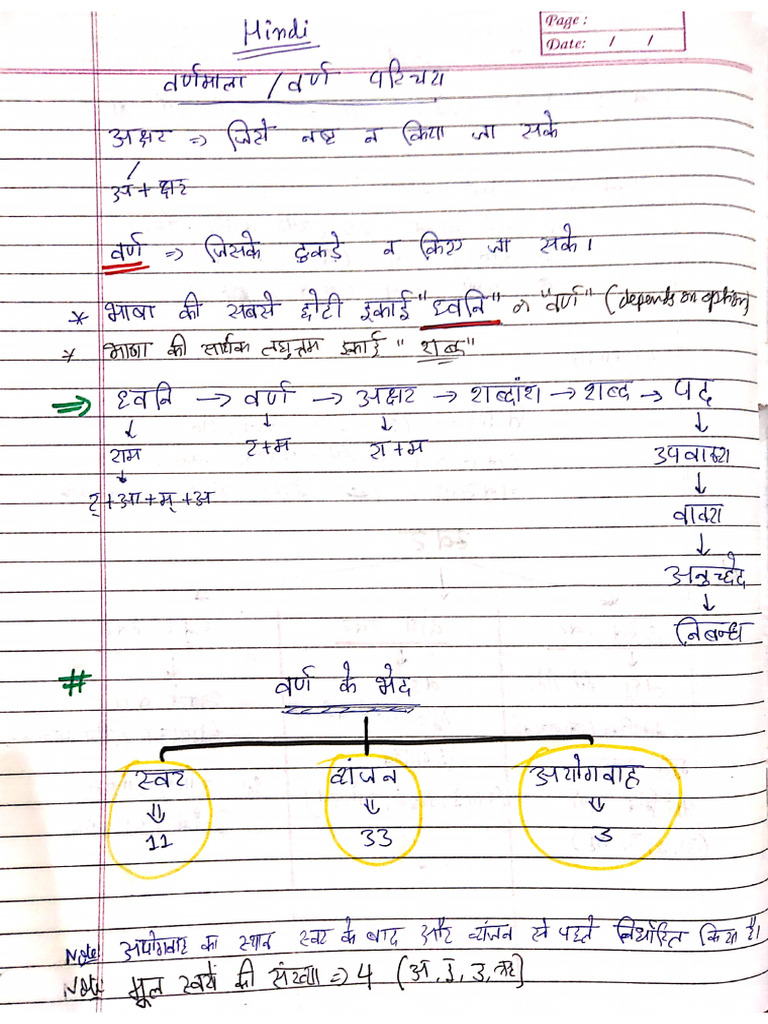 Hindi
Page :
Date: / /
वर्णमाला / वर्ण परिचय
अक्षर => जिसे नष्ट न किया जा सके
अ + क्षर
वर्ण => जिसके टुकड़े न किए जा सके।
* भाषा की सबसे छोटी इकाई "ध्वनि" "वर्ण" (depends on option)
* भाषा की सार्थक लघुत्तम इकाई "शब्द"
=> ध्वनि → वर्ण → अक्षर → शब्दांश → शब्द → पद
↓ ↓ ↓ ↓
राम र+म रा+म उपवाक्य
↓ ↓
र्+आ+म्+अ वाक्य
↓
अनुच्छेद
↓
निबन्ध
# वर्ण के भेद
स्वर व्यंजन अयोगवाह
⇓ ⇓ ⇓
11 33 3
Note: अयोगवाह का स्थान स्वर के बाद और व्यंजन से पहले निर्धारित किया है।
Note: मूल स्वरों की संख्या => 4 (अ, इ, उ, ऋ)